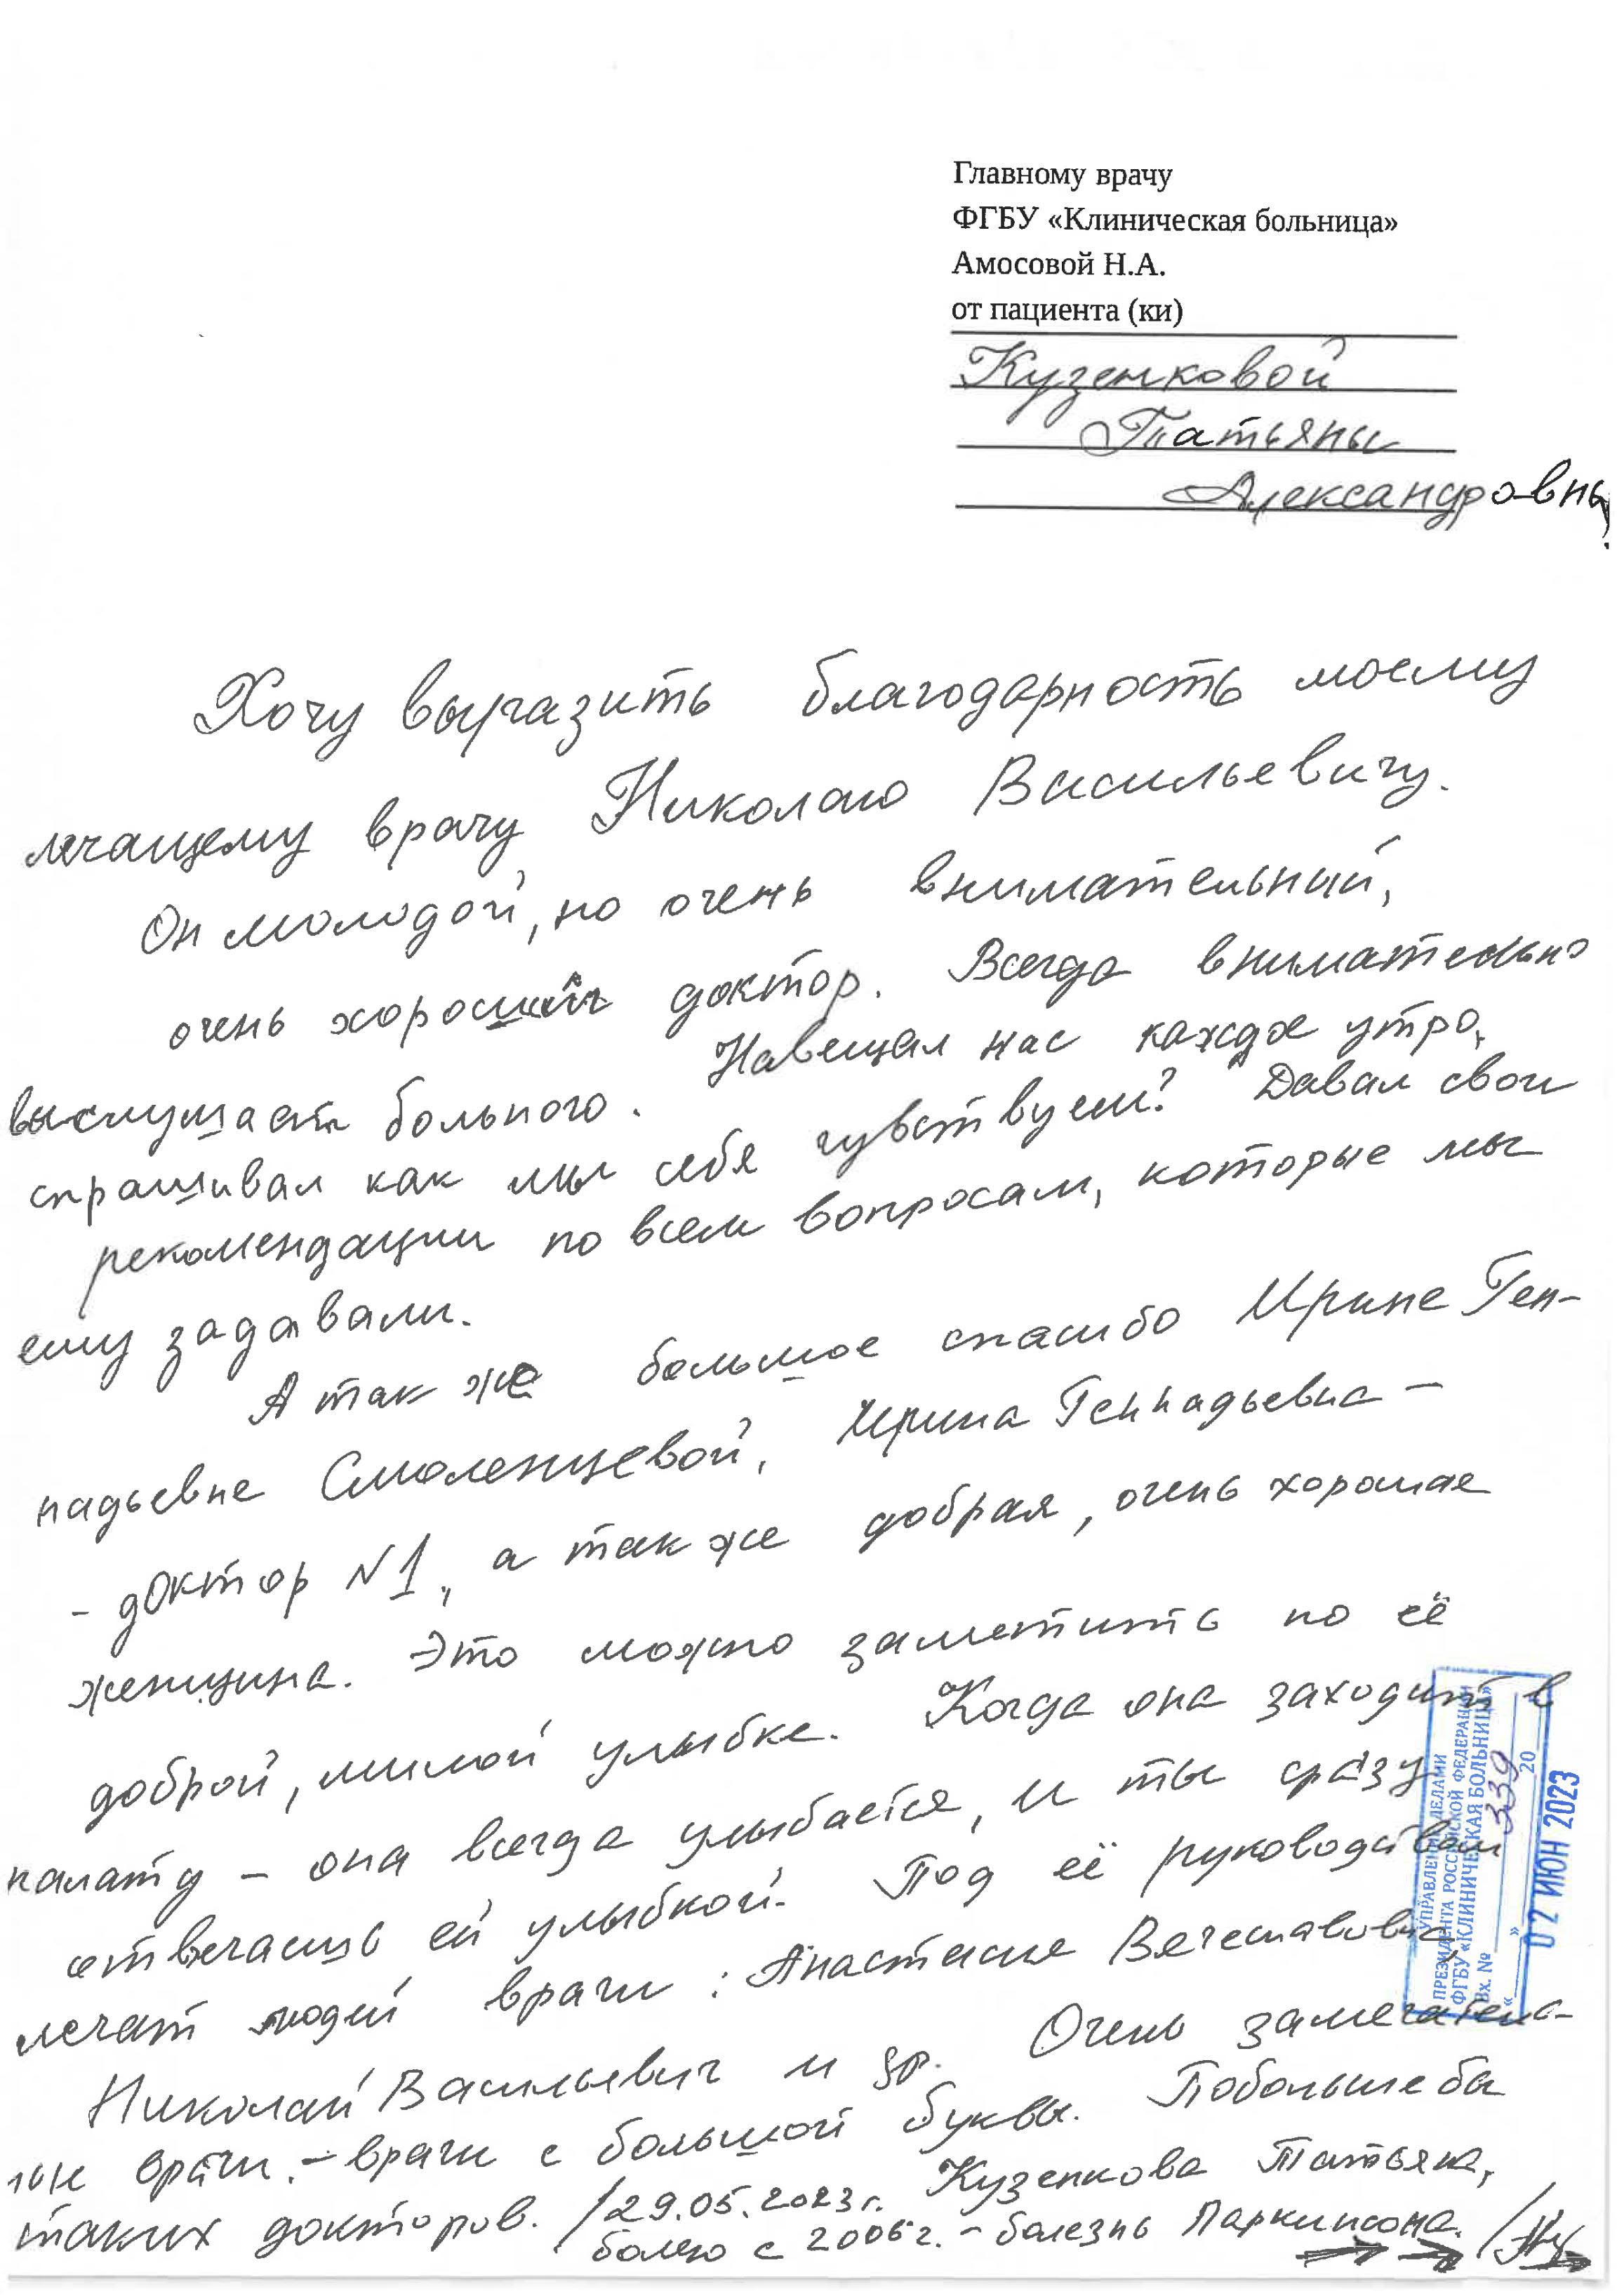 Главному врачу
ФГБУ «Клиническая больница»
Амосовой Н.А.
от пациента (ки)
Кузенковой
Татьяны
Александровны
Хочу выразить благодарность моему
лечащему врачу Николаю Васильевичу.
Он молодой, но очень внимательный,
очень хороший доктор. Всегда внимательно
выслушает больного. Навещал нас каждое утро,
спрашивал как мы себя чувствуем? Давал свои
рекомендации по всем вопросам, которые мы
ему задавали.
А так же большое спасибо Ирине Ген-
надьевне Смоленцевой, Ирина Геннадьевна –
- доктор №1, а так же добрая, очень хорошая
женщина. Это можно заметить по её
доброй, милой улыбке. Когда она заходит в
палату – она всегда улыбается, и ты сразу
отвечаешь ей улыбкой. Под её руководством
лечат людей врачи: Анастасия Вячеславовна,
Николай Васильевич и др. Очень замечатель-
ные врачи. – врачи с большой буквы. Побольше бы
таких докторов. /29.05.2023г. Кузенкова Татьяна,
болею с 2006г. – болезнь Паркинсона. /
УПРАВЛЕНИЕ ДЕЛАМИ
ПРЕЗИДЕНТА РОССИЙСКОЙ ФЕДЕРАЦИИ
ФГБУ «КЛИНИЧЕСКАЯ БОЛЬНИЦА»
Вх. № 339
« » 20
02 ИЮН 2023